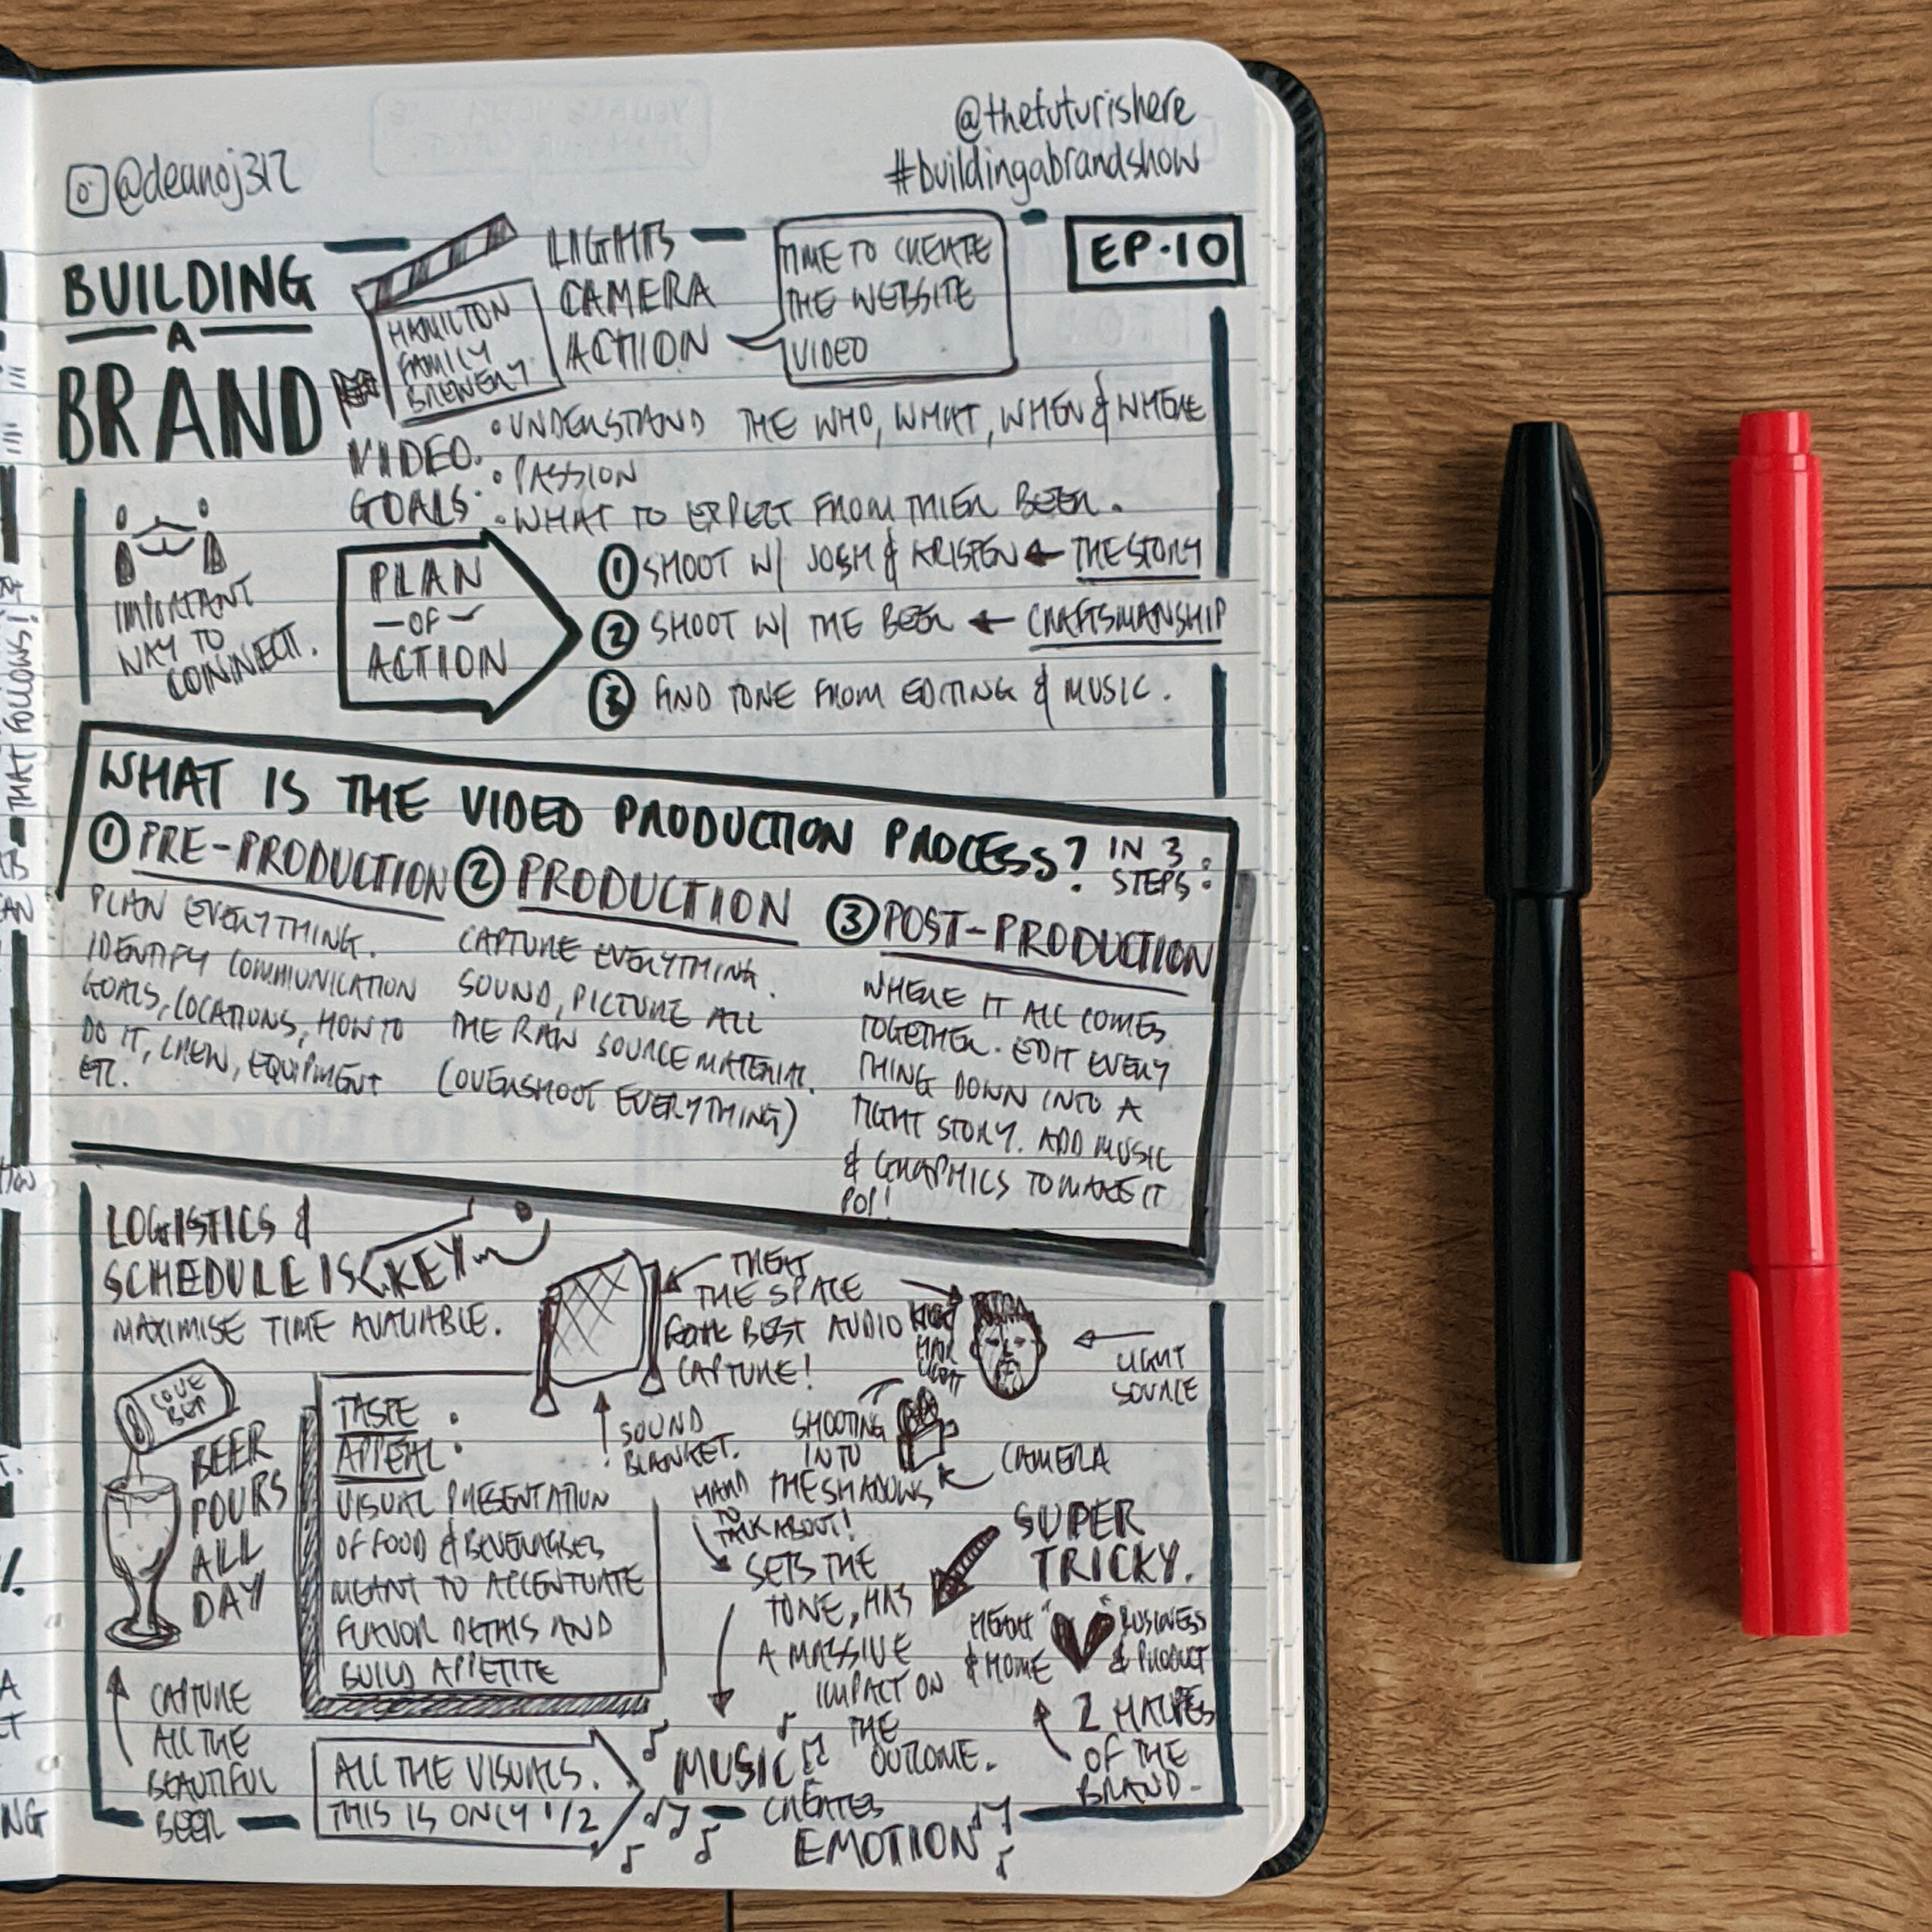 @thefuturishere
#buildingabrandshow
@deanoj312
BUILDING
A
BRAND
HAMILTON
FAMILY
BREWERY
LIGHTS
CAMERA
ACTION
TIME TO CREATE
THE WEBSITE
VIDEO
EP.10
VIDEO
GOALS:
• UNDERSTAND THE WHO, WHAT, WHEN & WHERE
• PASSION
• WHAT TO EXPECT FROM THIER BEER.
IMPORTANT
WAY TO
CONNECT.
PLAN
- OF -
ACTION
1 SHOOT W/ JOSH & KRISTEN ← THE STORY
2 SHOOT W/ THE BEER ← CRAFTSMANSHIP
3 FIND TONE FROM EDITING & MUSIC.
WHAT IS THE VIDEO PRODUCTION PROCESS? IN 3
STEPS:
1 PRE-PRODUCTION
PLAN EVERYTHING.
IDENTIFY COMMUNICATION
GOALS, LOCATIONS, HOW TO
DO IT, CREW, EQUIPMENT
ETC.
2 PRODUCTION
CAPTURE EVERYTHING.
SOUND, PICTURE ALL
THE RAW SOURCE MATERIAL.
(OVERSHOOT EVERYTHING)
3 POST-PRODUCTION
WHERE IT ALL COMES
TOGETHER. EDIT EVERY
THING DOWN INTO A
TIGHT STORY. ADD MUSIC
& GRAPHICS TO MAKE IT
POP!
LOGISTICS &
SCHEDULE IS KEY
MAXIMISE TIME AVAILIABLE.
TREAT
THE SPACE
FOR BEST AUDIO
CAPTURE!
SOUND
BLANKET.
HAIR
LIGHT
LIGHT
SOURCE
SHOOTING
INTO
THE SHADOWS
CAMERA
BEER
POURS
ALL
DAY
CAPTURE
ALL THE
BEAUTIFUL
BEER
TASTE
APPEAL:
VISUAL PRESENTATION
OF FOOD & BEVERAGES
MEANT TO ACCENTUATE
FLAVOR DETAILS AND
BUILD APPETITE
HARD
TO
TALK ABOUT!
SETS THE
TONE, HAS
A MASSIVE
IMPACT ON
THE
OUTCOME.
SUPER
TRICKY.
HEART
& HOME
BUSINESS
& PRODUCT
2 HALVES
OF THE
BRAND
ALL THE VISUALS.
THIS IS ONLY 1/2
MUSIC
CREATES
EMOTION
THAT FOLLOWS!